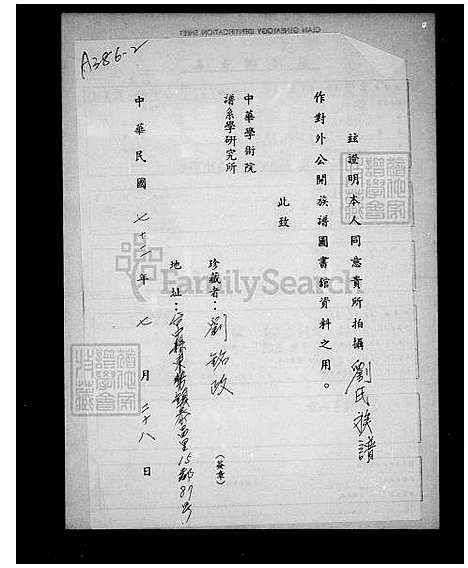 CLAN GENEALOGY IDENTIFICATION SHEET
A386-2
茲證明本人同意貴所拍攝劉氏族譜
作對外公開族譜圖書館資料之用。
此致
中華學術院
譜系學研究所
珍藏者：劉銘政（簽章）
地址：台中縣東勢鎮泰昌里15鄰87号
中華民國七十二年七月二十八日
FamilySearch